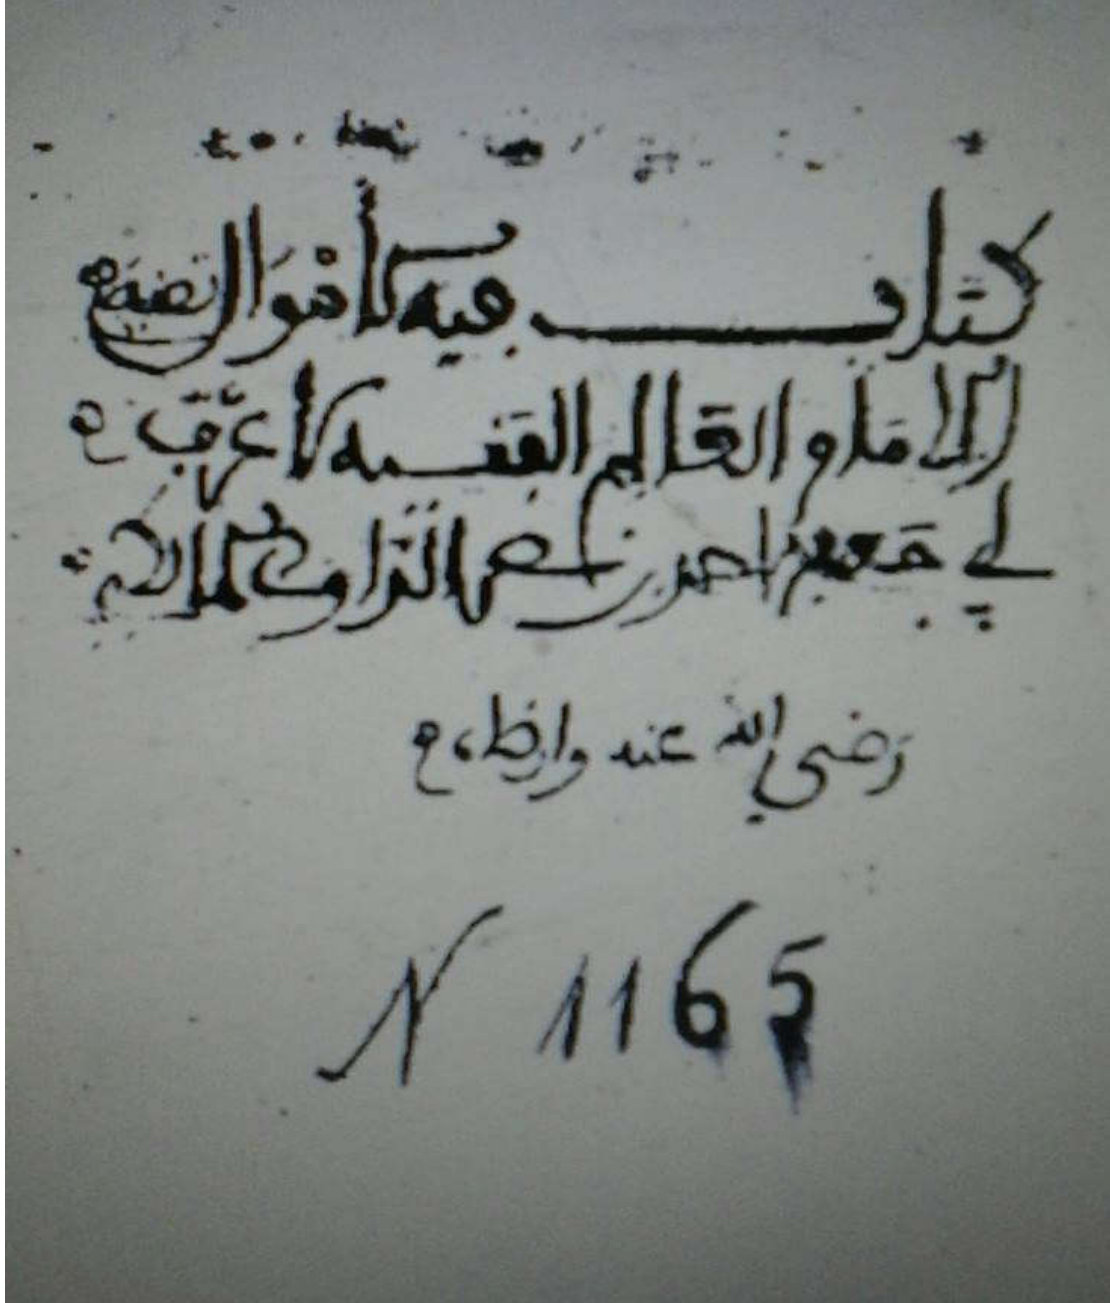 كتاب فيه الأموال
الامام العالم الفقيه
أبي جعفر احمد بن نصر الداودي المالكي
رضي الله عنه وارضاه
N 1165